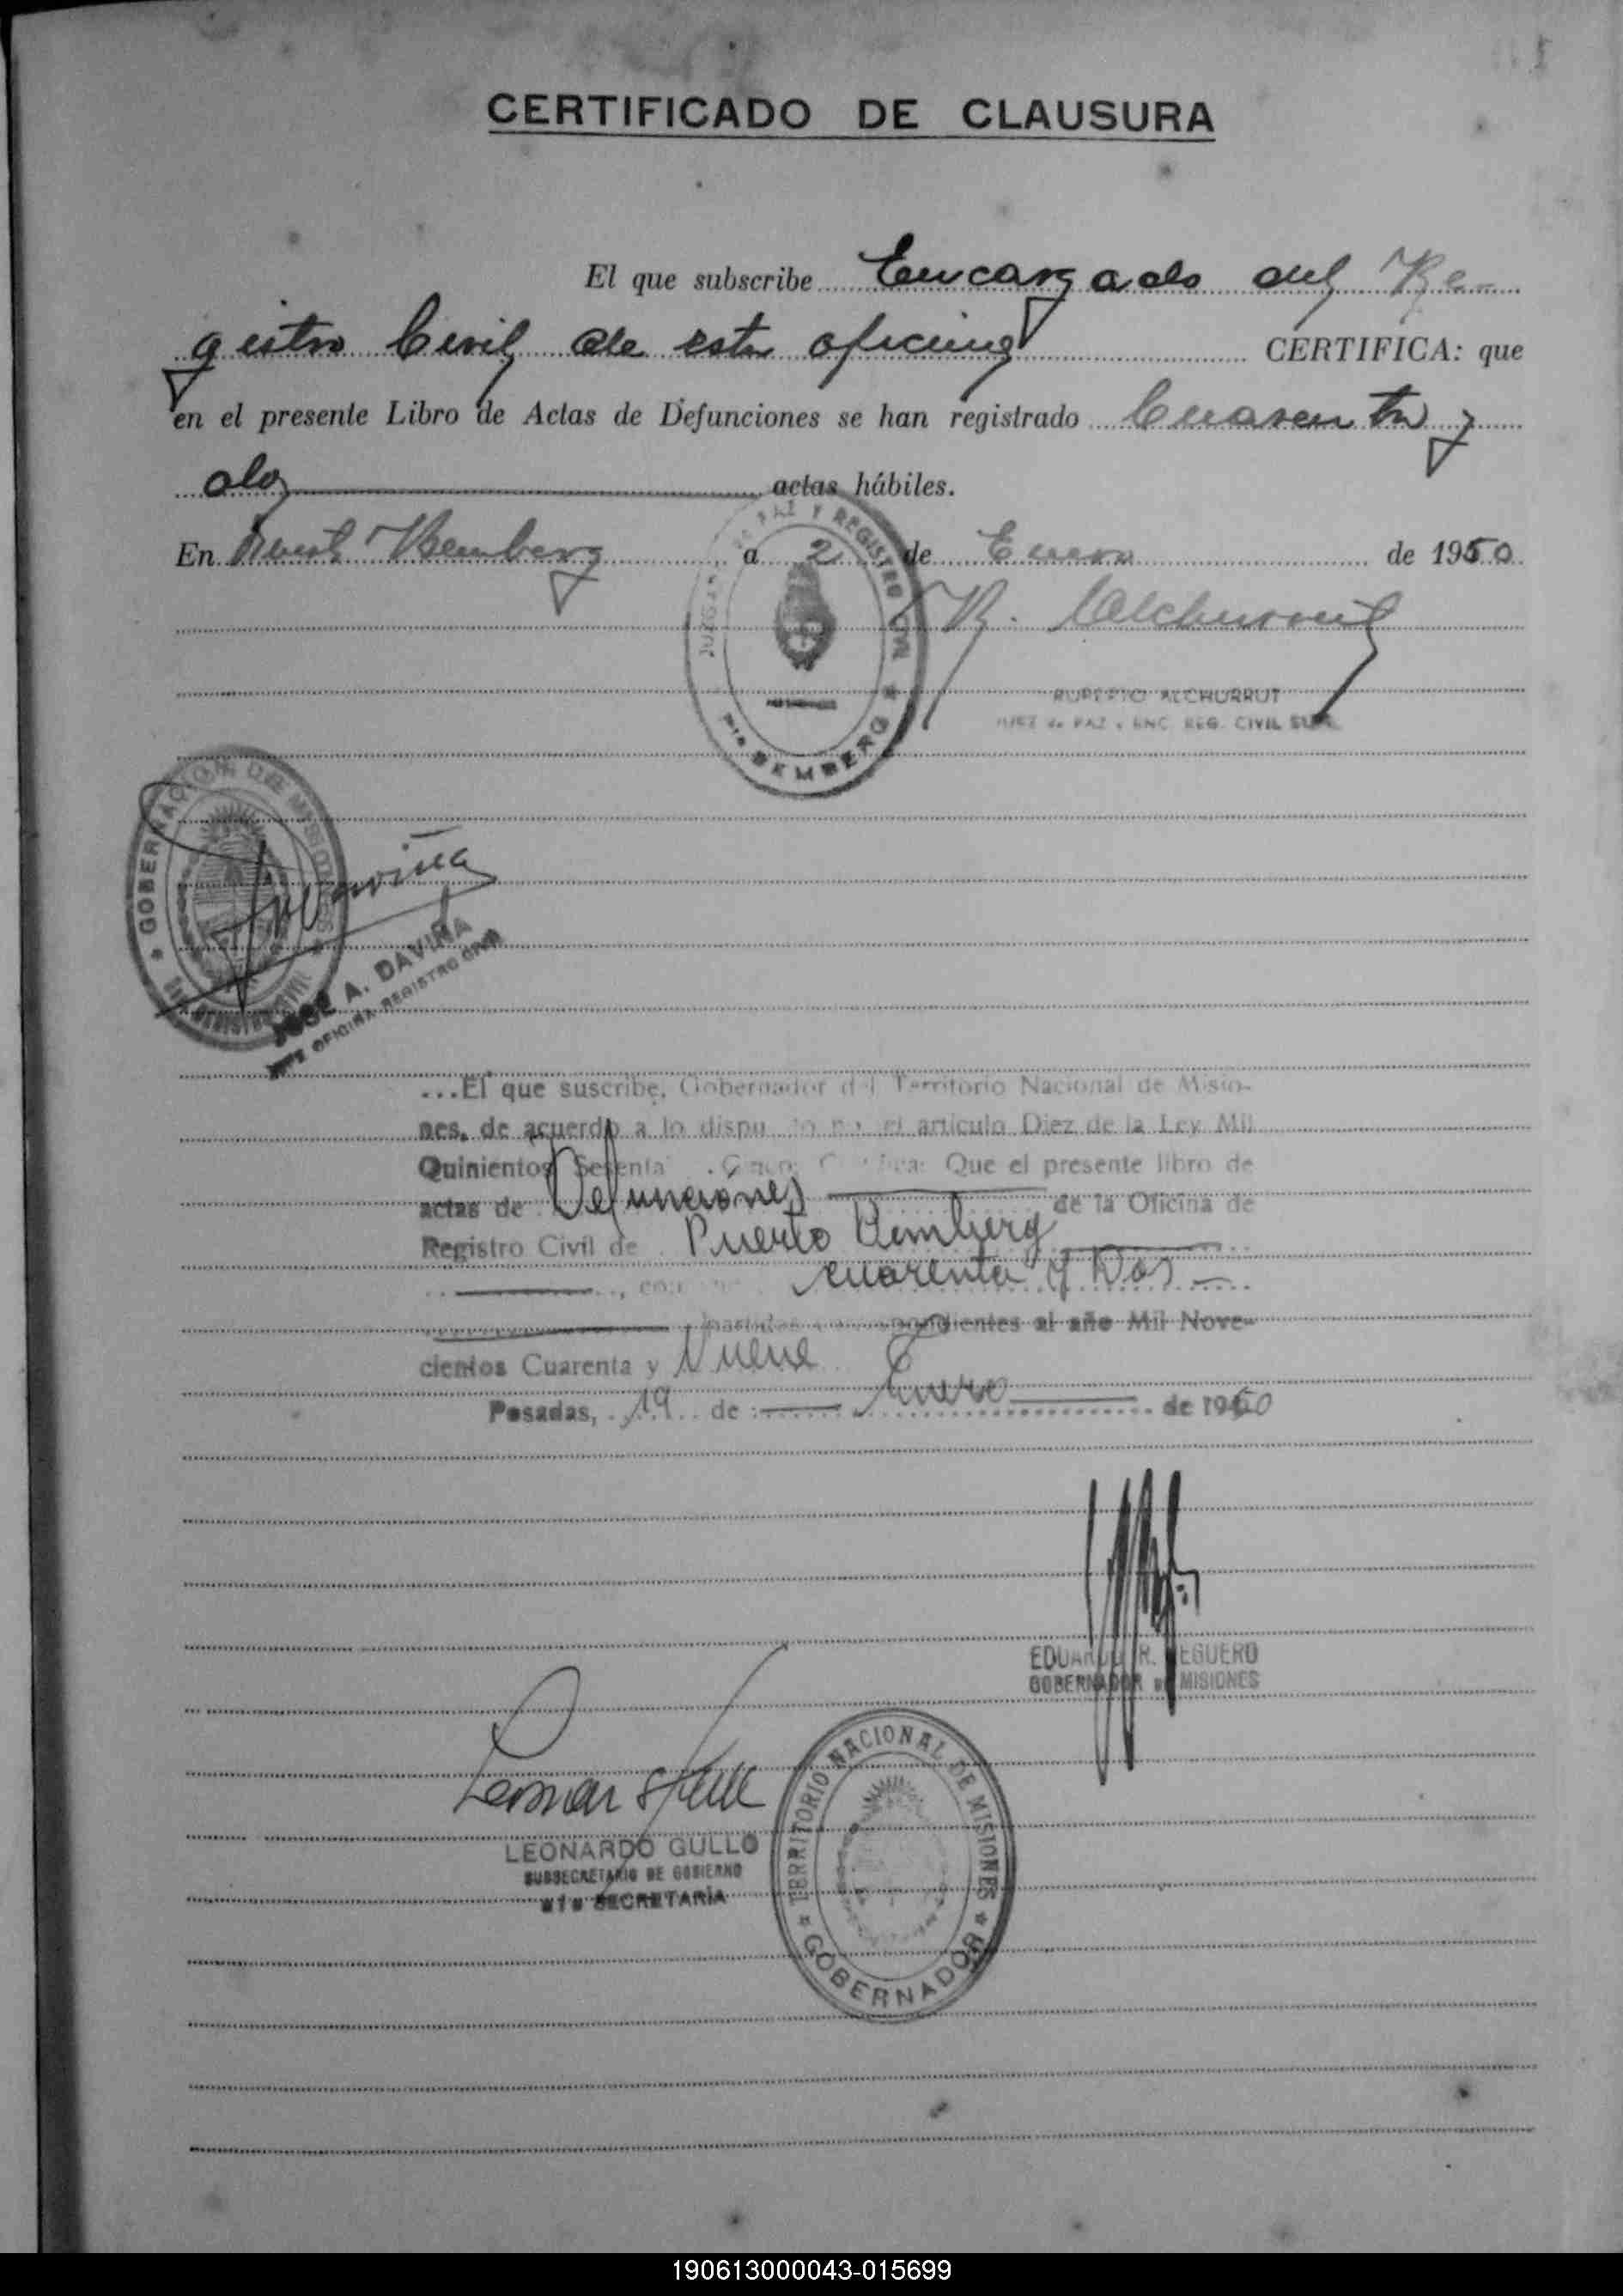 CERTIFICADO DE CLAUSURA
El que subscribe Encargado del Re-
gistro Civil de esta oficina CERTIFICA: que
en el presente Libro de Actas de Defunciones se han registrado Cuarenta y
dos actas hábiles.
En Puerto Bemberg a 2 de Enero de 1950
JUZGADO DE PAZ Y REGISTRO CIVIL
Pto BEMBERG
R. Alchurrut
RUPERTO ALCHURRUT
JUEZ de PAZ y ENC. REG. CIVIL SUP.
GOBERNACION DE MISIONES
Daviña
JOSE A. DAVIÑA
JEFE OFICINA REGISTRO CIVIL
...El que suscribe, Gobernador del Territorio Nacional de Misio-
nes, de acuerdo a lo dispuesto por el artículo Diez de la Ley Mil
Quinientos Setenta Cinco, Certifica: Que el presente libro de
actas de Defunciones de la Oficina de
Registro Civil de Puerto Bemberg
cuarenta y Dos
partidas correspondientes al año Mil Nove-
cientos Cuarenta y Nueve
Posadas, 19 de Enero de 1950
EDUARDO R. REGUERO
GOBERNADOR DE MISIONES
LEONARDO GULLO
SUBSECRETARIO DE GOBIERNO
SECRETARÍA
TERRITORIO NACIONAL DE MISIONES
GOBERNADOR
190613000043-015699